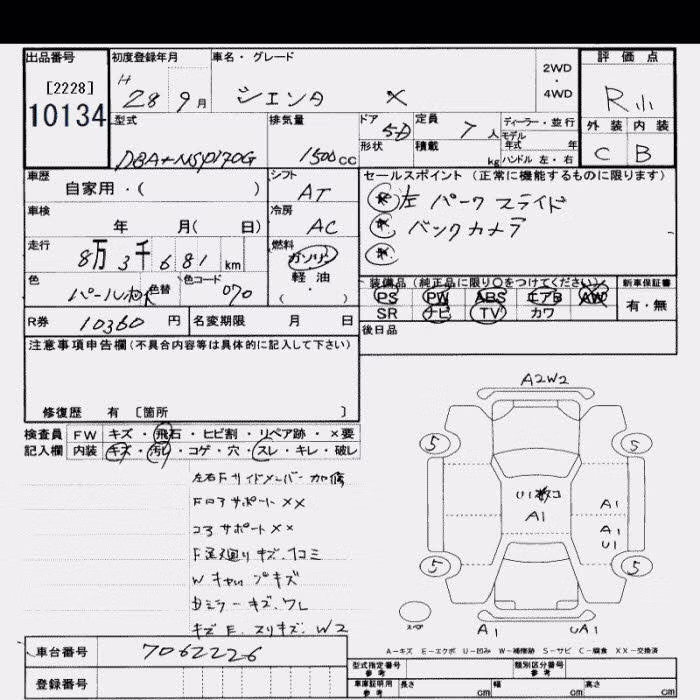 出品番号 初度登録年月 車名・グレード 2WD・4WD 評価点
[2228] H 28 9月 シエンタ X R小
10134 型式 排気量 ドア 5D 定員 7人 ディーラー・並行 外装 内装
モデル
年式 年
DBA-NSP170G 1500cc 形状 積載 kg ハンドル 左・右 C B
車歴 シフト セールスポイント(正常に機能するものに限ります)
自家用・( ) AT 左パークスライド
車検 冷房 バックカメラ
年 月( 日) AC
走行 8万3千681km 燃料 ガソリン
軽油・( )
色 パール 色替 色コード 070 装備品(純正品に限り○をつけてください) 新車保証書
PS PW ABS エアB AW 有・無
SR ナビ TV カワ
R券 10360円 名変期限 月 日 後日品
注意事項申告欄(不具合内容等は具体的に記入して下さい)
修復歴 有 [箇所 ]
検査員 FW キズ・飛石・ヒビ割・リペア跡・×要
記入欄 内装 キズ・汚レ・コゲ・穴・スレ・キレ・破レ
左右Fサイドメンバー加修
Fコアサポート××
コアサポート××
F足廻りキズ、
W キャリパキズ
Dミラーキズ、ワレ
キズE、スリキズ、W2
A2W2
5 5
U1
A1 A1
A1
U1
5 5
スペア
A1 UA1
A-キズ E-エクボ U-凹み W-補修跡 S-サビ C-腐食 XX-交換済
車台番号 7062226
登録番号
型式指定番号 参考 類別区分番号 参考
車庫証明用 参考 長さ cm 幅 cm 高さ cm